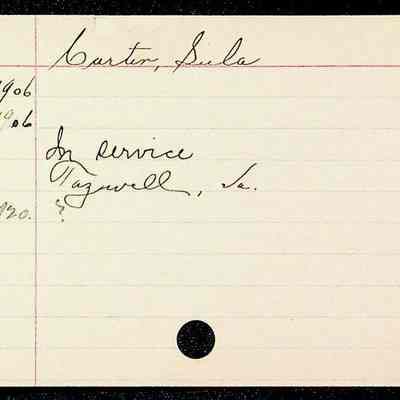 Carter, Sula
1906
1906
In service
Tazewell, Va.
1920. ?